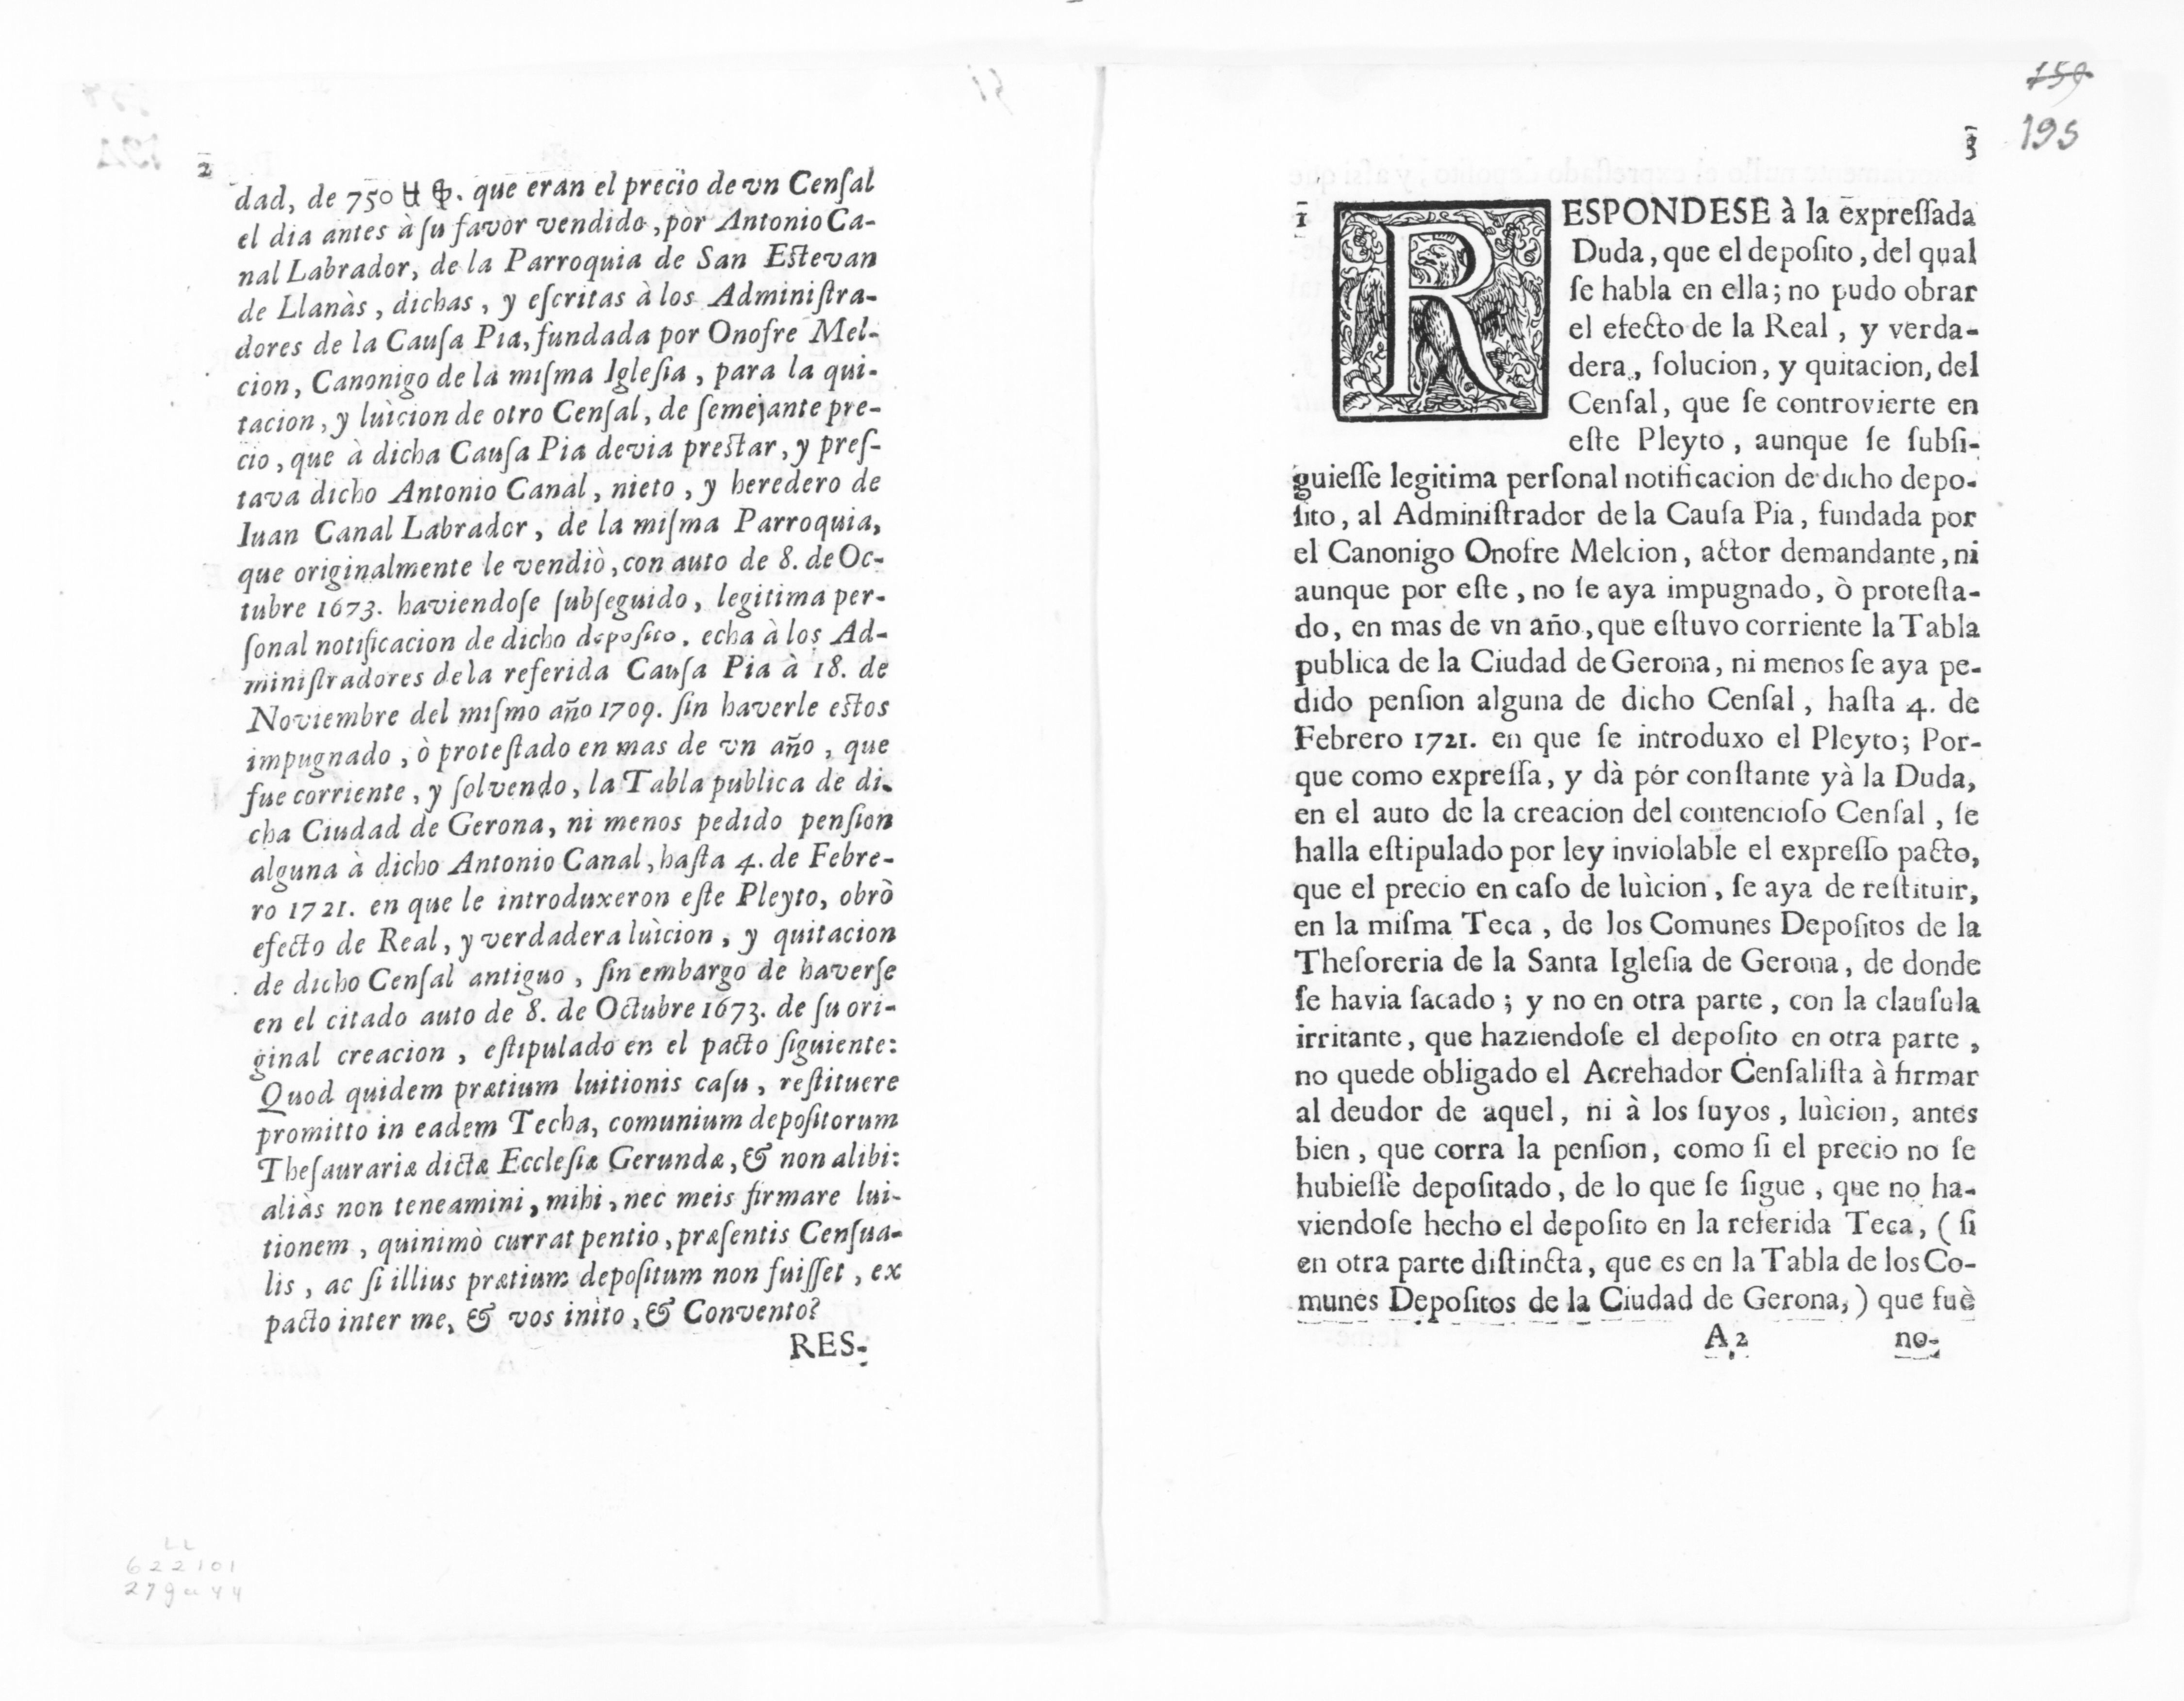 2
dad, de 750 que eran el precio de vn Cenſal
el dia antes à ſu favor vendido, por Antonio Ca-
nal Labrador, de la Parroquia de San Estevan
de Llanàs, dichas, y eſcritas à los Adminiſtra-
dores de la Cauſa Pia, fundada por Onofre Mel-
cion, Canonigo de la miſma Igleſia, para la qui-
tacion, y luìcion de otro Cenſal, de ſemejante pre-
cio, que à dicha Cauſa Pia devia prestar, y preſ-
tava dicho Antonio Canal, nieto, y heredero de
Iuan Canal Labrador, de la miſma Parroquia,
que originalmente le vendiò, con auto de 8. de Oc-
tubre 1673. haviendoſe ſubſeguido, legitima per-
ſonal notificacion de dicho depoſito, echa à los Ad-
miniſtradores de la referida Cauſa Pia à 18. de
Noviembre del miſmo año 1709. ſin haverle estos
impugnado, ò proteſtado en mas de vn año, que
fue corriente, y ſolvendo, la Tabla publica de di-
cha Ciudad de Gerona, ni menos pedido penſion
alguna à dicho Antonio Canal, haſta 4. de Febre-
ro 1721. en que le introduxeron eſte Pleyto, obrò
efecto de Real, y verdadera luìcion, y quitacion
de dicho Cenſal antiguo, ſin embargo de haverſe
en el citado auto de 8. de Octubre 1673. de ſu ori-
ginal creacion, eſtipulado en el pacto ſiguiente:
Quod quidem prætium luitionis caſu, reſtituere
promitto in eadem Techa, comunium depoſitorum
Theſaurariæ dictæ Eccleſiæ Gerundæ, & non alibi:
aliàs non teneamini, mihi, nec meis firmare lui-
tionem, quinimò currat pentio, præſentis Cenſua-
lis, ac ſi illius prætium depoſitum non fuiſſet, ex
pacto inter me, & vos inìto, & Convento?
RES-
159
195
3
1
RESPONDESE à la expreſſada
Duda, que el depoſito, del qual
ſe habla en ella; no pudo obrar
el efecto de la Real, y verda-
dera, ſolucion, y quitacion, del
Cenſal, que ſe controvierte en
eſte Pleyto, aunque ſe ſubſi-
guieſſe legitima perſonal notificacion de dicho depo-
ſito, al Adminiſtrador de la Cauſa Pia, fundada por
el Canonigo Onofre Melcion, actor demandante, ni
aunque por eſte, no ſe aya impugnado, ò proteſta-
do, en mas de vn año, que eſtuvo corriente la Tabla
publica de la Ciudad de Gerona, ni menos ſe aya pe-
dido penſion alguna de dicho Cenſal, haſta 4. de
Febrero 1721. en que ſe introduxo el Pleyto; Por-
que como expreſſa, y dà pór conſtante yà la Duda,
en el auto de la creacion del contencioſo Cenſal, ſe
halla eſtipulado por ley inviolable el expreſſo pacto,
que el precio en caſo de luìcion, ſe aya de reſtituir,
en la miſma Teca, de los Comunes Depoſitos de la
Theſoreria de la Santa Igleſia de Gerona, de donde
ſe havia ſacado; y no en otra parte, con la clauſula
irritante, que haziendoſe el depoſito en otra parte,
no quede obligado el Acrehador Cenſaliſta à firmar
al deudor de aquel, ni à los ſuyos, luìcion, antes
bien, que corra la penſion, como ſi el precio no ſe
hubieſſe depoſitado, de lo que ſe ſigue, que no ha-
viendoſe hecho el depoſito en la referida Teca, (ſi
en otra parte diſtincta, que es en la Tabla de los Co-
munes Depoſitos de la Ciudad de Gerona,) que fuè
A 2 no-
LL
622101